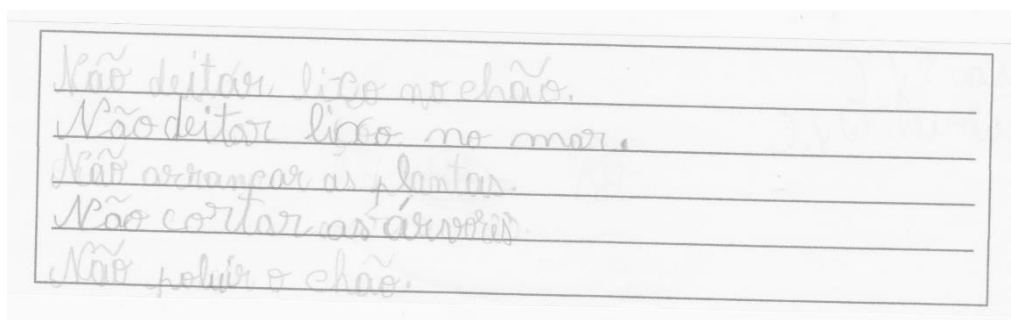 Não deitar lixo no chão.
Não deitar lixo no mar.
Não arrancar as plantas.
Não cortar as árvores
Não poluir o chão.